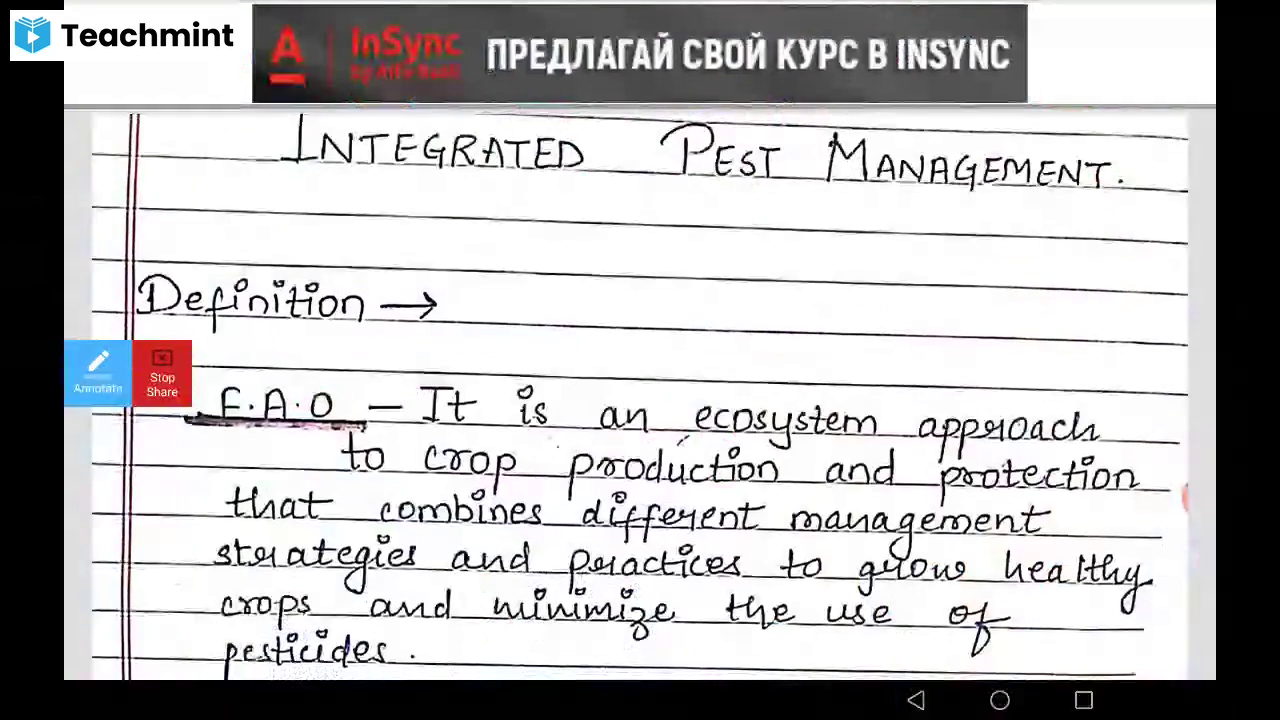 Teachmint
InSync
ПРЕДЛАГАЙ СВОЙ КУРС В INSYNC
by Alfa Bank
INTEGRATED PEST MANAGEMENT.
Definition →
Annotate
Stop
Share
F.A.O – It is an ecosystem approach
to crop production and protection
that combines different management
strategies and practices to grow healthy
crops and minimize the use of
pesticides.